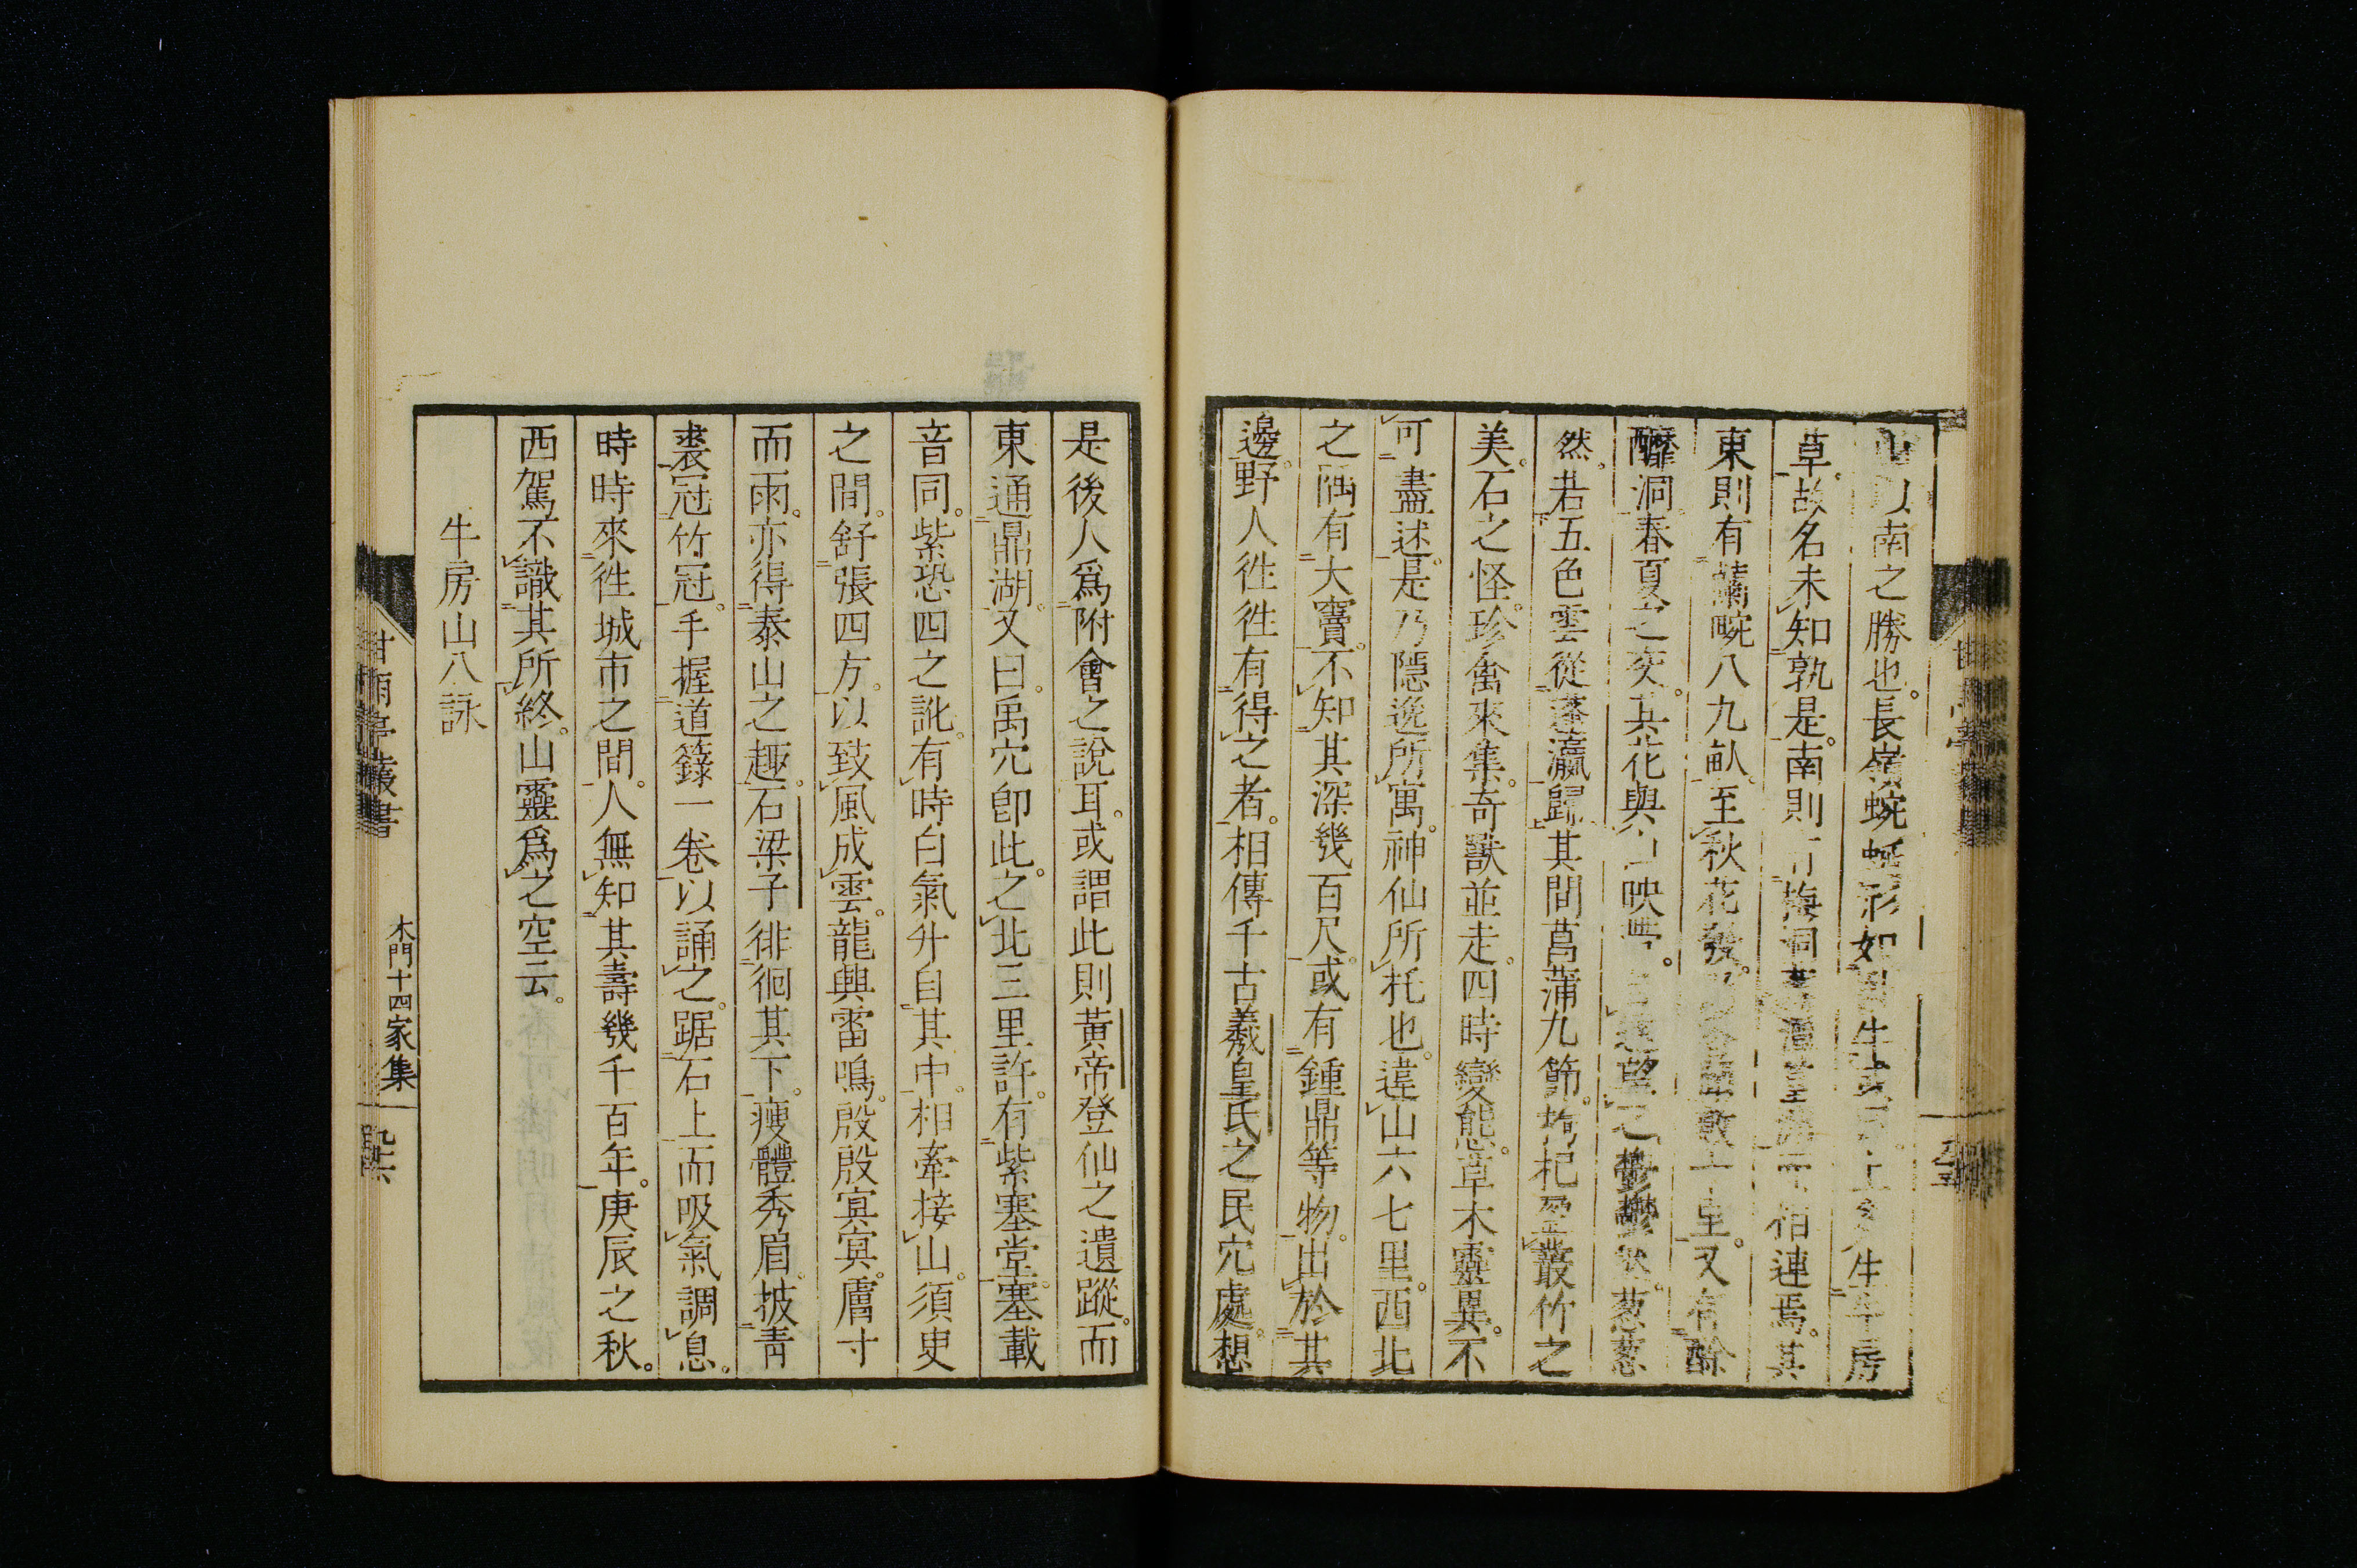 山以南之勝也。長嶺蜿蜒形如
牛房
草。故名未知孰是。南則有梅洞相連焉。其
東則有蘭畹八九畝。至秋花發。里。又有酴
醿洞。春夏之交。其花與映。望之鬱鬱然。葱葱
然。若五色雲從蓬瀛歸。其間菖蒲九節。枸杞盈叢。竹之
美。石之怪。珍禽來集。奇獸並走。四時變態。草木靈異。不
可盡述。是乃隱逸所寓。神仙所托也。違山六七里。西北
之隅有大竇。不知其深幾百尺。或有鍾鼎等物。出於其
邊。野人徃徃有得之者。相傳千古羲皇氏之民穴處。想
是後人爲附會之說耳。或謂此則黃帝登仙之遺蹤。而
東通鼎湖。又曰。禹穴卽此。之北三里許。有紫塞堂。塞載
音同。紫恐四之訛。有時白氣升自其中。相牽接山。須臾
之間。舒張四方。以致風成雲。龍興雷鳴。殷殷冥冥。膚寸
而雨。亦得泰山之趣。石梁子徘徊其下。瘦體秀眉。披青
裘。冠竹冠。手握道籙一卷以誦之。踞石上而吸氣調息。
時時來徃城市之間。人無知其壽幾千百年。庚辰之秋。
西駕不識其所終。山靈爲之空云。
牛房山八詠
甘雨亭叢書
木門十四家集